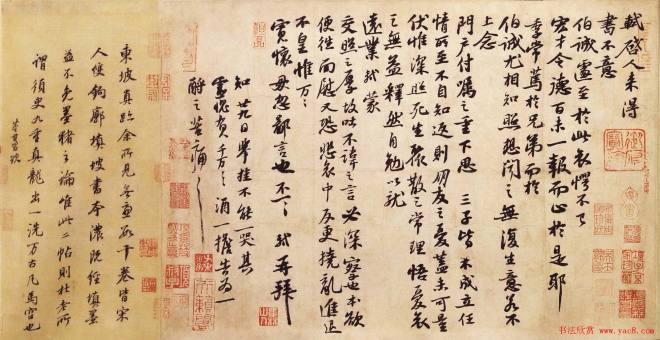 軾啓人來得
書不意
伯誠遽至於此哀愕不已
宏才令德百未一報而止於是耶
季常篤於兄弟而於
伯誠尤相知照想聞之無復生意若不
上念
門户付囑之重下思三子皆不成立任
情所至不自知返則朋友之憂蓋未可量
伏惟深照死生聚散之常理悟憂哀
之無益釋然自勉以就
遠業軾蒙
交照之厚故吐不諱之言必深察也本欲
便往面慰又恐悲哀中反更撓亂進退
不皇惟万万
寬懷毋忽鄙言也不一一軾再拜
知廿九日舉挂不能一哭其
靈愧負千万千万酒一擔告為一
酹之苦痛苦痛
東坡真跡余所見無慮數十卷皆宋
人雙鉤廓填坡書本濃既經填墨
益不免墨豬之論唯此二帖則杜老所
謂須臾九重真龍出一洗万古凡馬空也
董其昌跋
书法欣赏
www.yac8.com